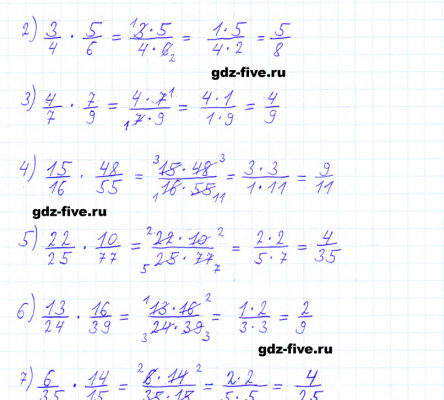 2) 3/4 · 5/6 = 3·5/4·6 = 1·5/4·2 = 5/8
gdz-five.ru
3) 4/7 · 7/9 = 4·7/7·9 = 4·1/1·9 = 4/9
4) 15/16 · 48/55 = 15·48/16·55 = 3·3/1·11 = 9/11
gdz-five.ru
5) 22/25 · 10/77 = 22·10/25·77 = 2·2/5·7 = 4/35
6) 13/24 · 16/39 = 13·16/24·39 = 1·2/3·3 = 2/9
gdz-five.ru
7) 6/35 · 14/15 = 6·14/35·15 = 2·2/5·5 = 4/25